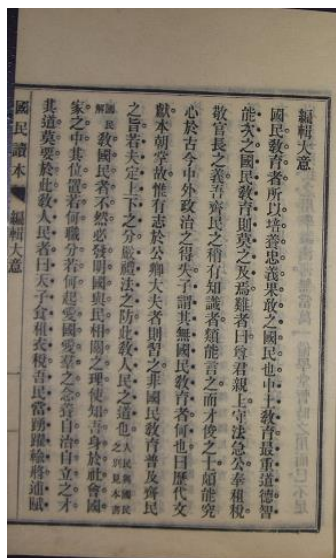 編輯大意
國民教育者所以培養忠義果敢之國民也中土教育最重道德智
能次之國民教育則莫之及焉難者曰尊君親上守法急公奉租稅
敬官長之義吾齊民之稍有知識者類能言之而才俊之士頗能究
心於古今中外政治之得失子謂其無國民教育者何也曰歷代文
獻本朝掌故惟有志於公卿大夫者則習之非國民教育普及齊民
之旨若夫定上下之分嚴禮法之防此教人民之道也人民與國民之別見本書
國民解教國民者不然必發明國與民相關之理使知吾身於社會國
家之中其位置若何職分若何起愛國愛羣之念聳自治自立之才
其道莫要於此教人民者曰天子食租衣稅吾民當踴躍輸將速賦
國民讀本
編輯大意